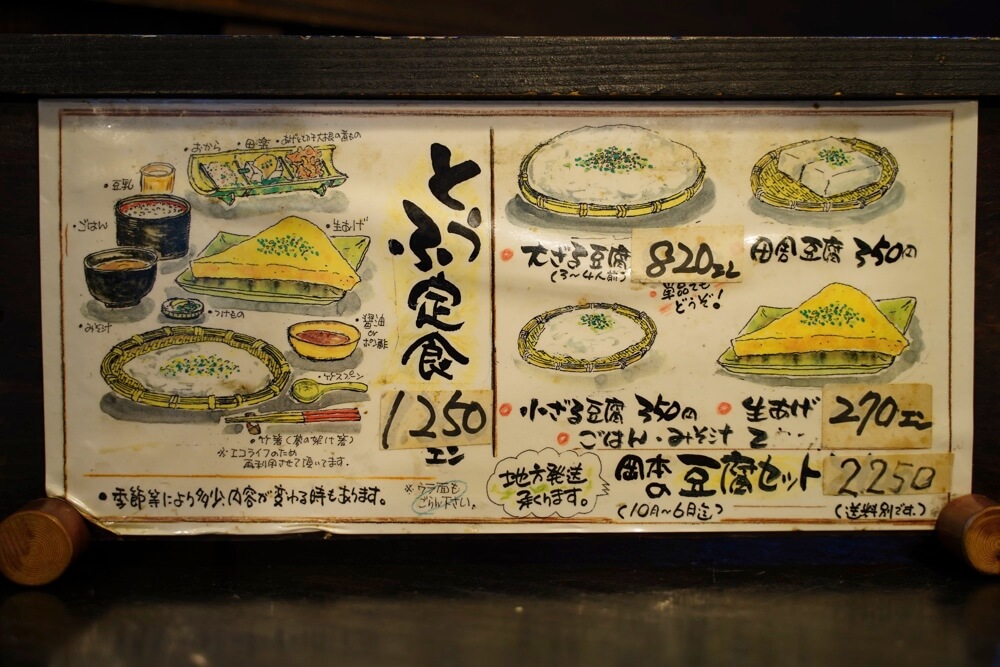 ・おから ・田楽 ・あげと切干大根の煮もの
・豆乳
・ごはん
・生あげ
・みそ汁
・つけもの
醤油
or
ポン酢
・竹スプーン
・竹箸(
※エコライフのため
再利用させて頂いてます。
とうふ定食
1250
エン
・季節等により多少、内容が変わる時もあります。
※ウラ面も
ごらん下さい。
大ざる豆腐 820エン
(3〜4人前)
単品でも
どうぞ!
田舎豆腐 350円
小ざる豆腐 350円
生あげ 270エン
ごはん・みそ汁
地方発送
承ります。
岡本の豆腐セット 2250
(10月〜6月迄)
(送料別です。)